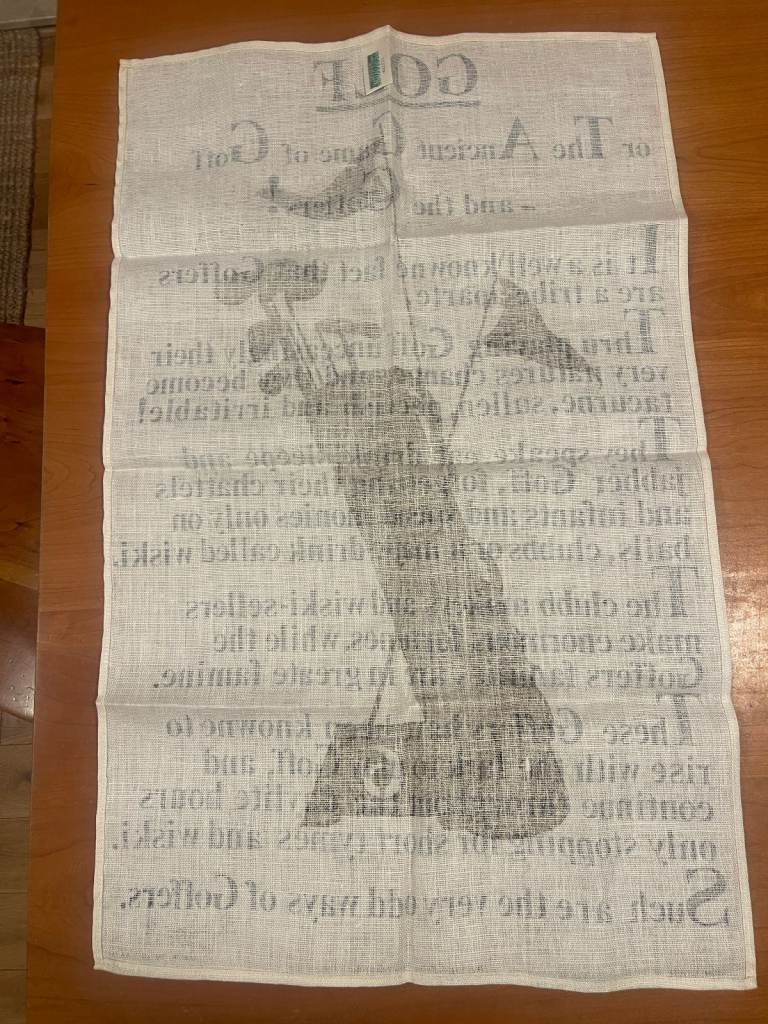 GOLF
or The Ancient Game of Goff
– and the Goffers!
It is a well knowne fact that Goffers
are a tribe aparte.
Thru Goff their
very natures become
taciturne, sullen, and irritable!
They speake, and
jabber Goff, their chattels
and infants and monies only on
balls, clubbs or a drink called wiski.
The clubb and wiski-sellers
make enormous fortunes, while the
Goffers families in greate famine.
These Goffers have been knowne to
rise with the lark to Goff, and
continue hours
only stopping for short tymes and wiski.
Such are the very odd ways of Goffers.